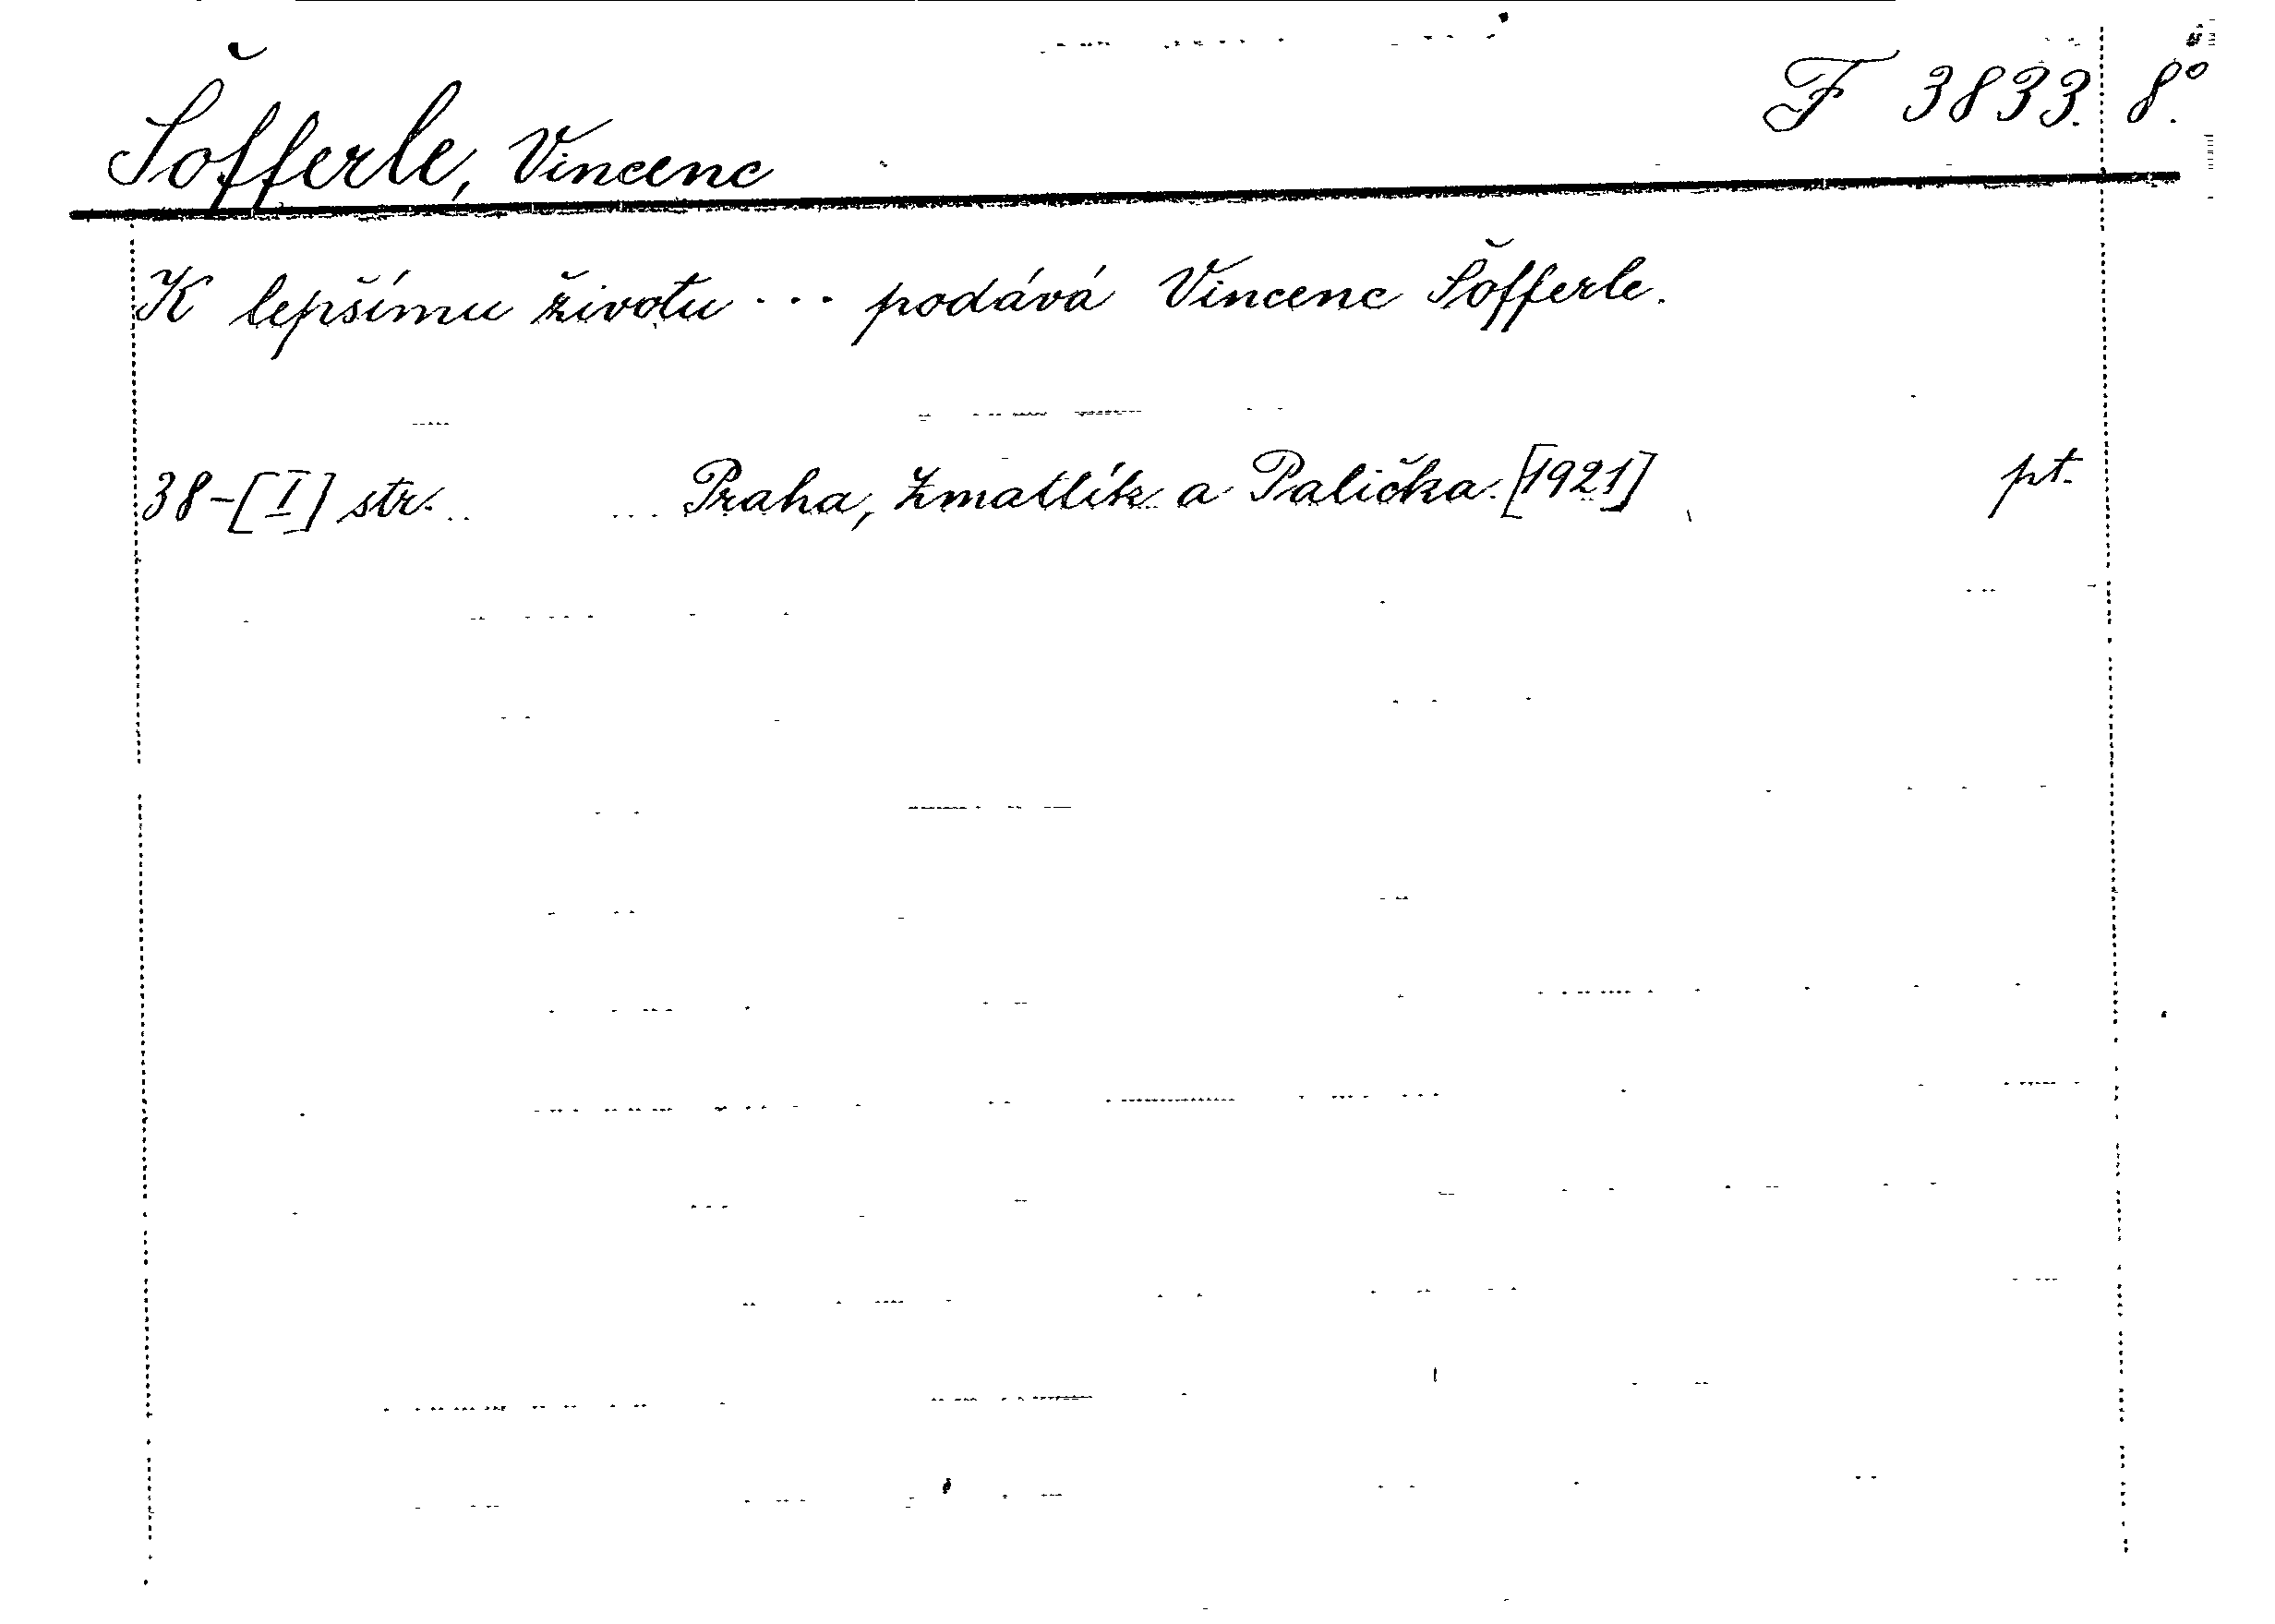 F 3833. 8°.
Šofferle, Vincenc
K lepšímu životu ... podává Vincenc Šofferle.
38-[I] str. Praha, Zmatlík a Palička. [1921] pt.